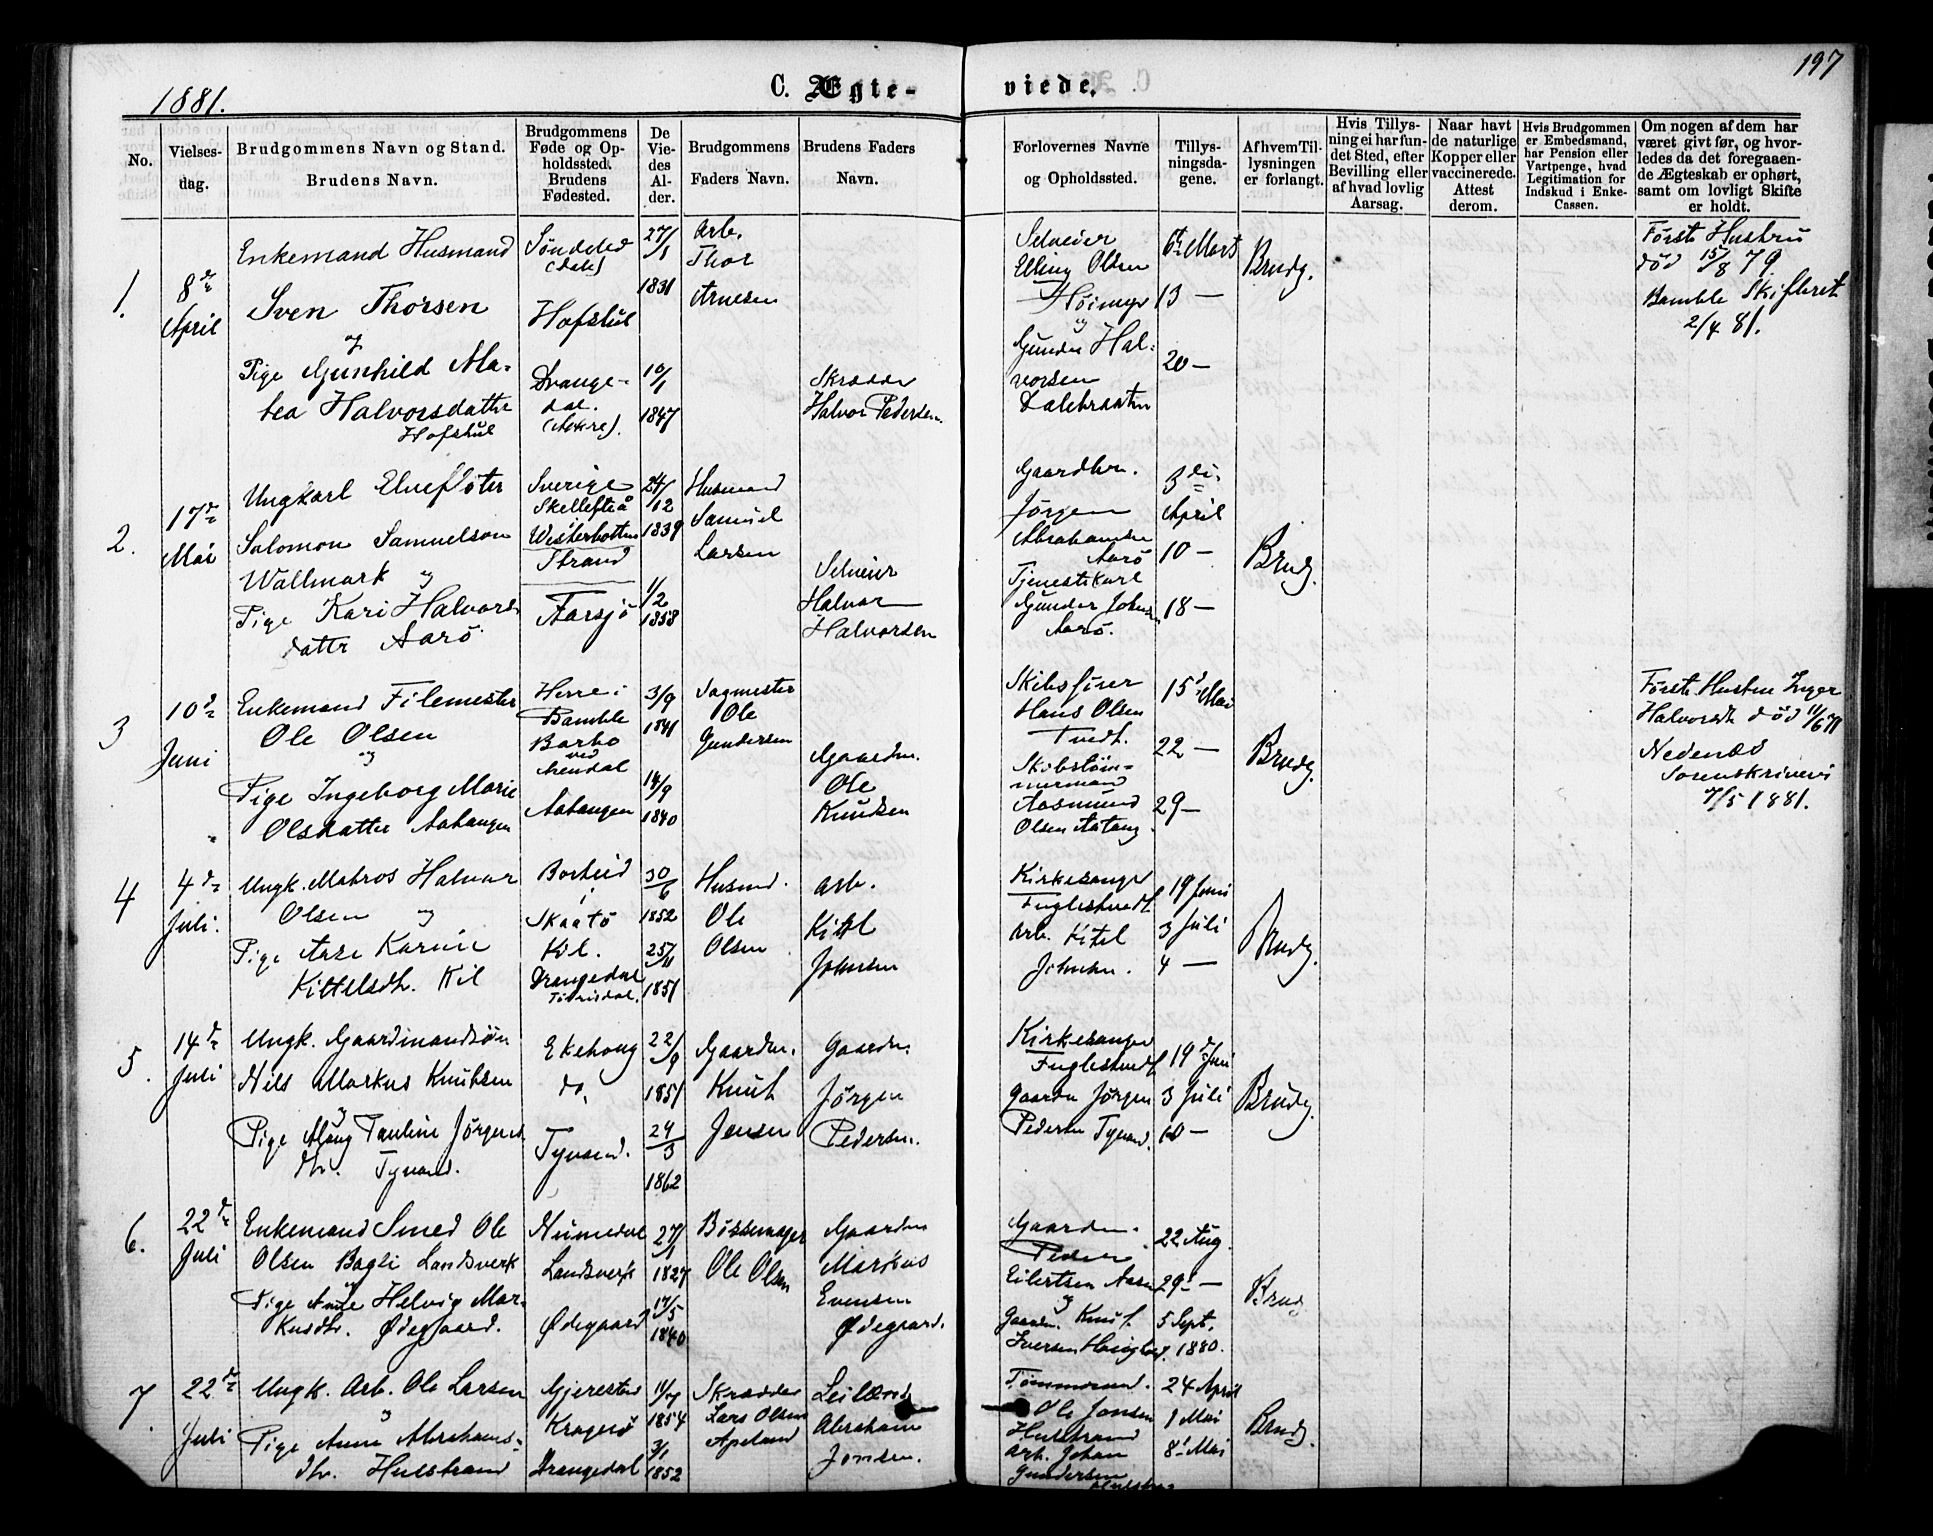 197
1881.
C. Ægte-
viede.
No.
Vielses-
dag.
Brudgommens Navn og Stand.
Brudens Navn.
Brudgommens
Føde og Op-
holdssted.
Brudens
Fødested.
De
Vie-
des
Al-
der.
Brudgommens
Faders Navn.
Brudens Faders
Navn.
Forlovernes Navne
og Opholdssted.
Tillys-
ningsda-
gene.
Af hvem Til-
lysningen
er forlangt.
Hvis Tillys-
ning ei har fun-
det Sted, efter
Bevilling eller
af hvad lovlig
Aarsag.
Naar havt
de naturlige
Kopper eller
vaccinerede.
Attest
derom.
Hvis Brudgommen
er Embedsmand,
har Pension eller
Vartpenge, hvad
Legitimation for
Indskud i Enke-
Cassen.
Om nogen af dem har
været givt før, og hvor-
ledes da det foregaaen-
de Ægteskab er ophørt,
samt om lovligt Skifte
er holdt.
1.
8de
April
Enkemand Husmand
Sven Thorsen
og
Pige Gunhild Ma-
tea Halvorsdatter
Hofstul
Søndeled
(Dale)
Hofstul
Drange-
dal.
27/1
1831
10/1
1847
Arb.
Thor
Arnesen
Skrædder
Halvor Pedersen.
Selveier
Elling Olsen
Høimyr
og
Gunder Hal-
vorsen
6te Marts
13 —
20 —
Brudg.
Første Hustru
død 15/8 79
Bamble Skifteret
2/4 81.
2.
17de
Mai
Ungkarl Elvefløter
Salomon Samuelson
Wallmark og
Pige Kari Halvors-
datter Aarö
Sverige
Skellefteå
Westerbotten
Strand
Farsjø
24/12
1839
1/2
1858
Husmand
Samuel
Larsen
Selveier
Halvor
Halvorsen
Gaardbr.
Jørgen
Abrahamsen
Aarö
Tjenestekarl
Gunder Johns.
Aarö.
3die
April
10 —
18 —
Brudg.
3
10de
Juni
Enkemand Filemester
Ole Olsen
og
Pige Ingeborg Marie
Olsdatter Aatangen
Herre i
Bamble
Barbo
ved
Arendal
Aatangen
3/9
1841
14/9
1840
Sagmester
Ole
Gundersen
Gaardm.
Ole
Knudsen
Skibsfører
Hans Olsen
Tvedt.
Skibstøm-
mermand
Aasmund
Olsen Aatang.
15de Mai
22 —
29 —
Brudg.
Første Hustru Inger
Halvorsdt død
Nedenæs
Sorenskriveri
7/5 1881.
4
4de
Juli.
Ungk. Matros Halvor
Olsen og
Pige Aase Karine
Kittelsdt. Kil
i
Skaatö
Kil.
Drangedal
30/6
1852
25/11
1851
Husmd.
Ole
Olsen
Arb.
Kittel
Johnsen
Kirkesanger
Fuglestvedt
Arb. Kitel
Johnsen.
19 Juni
3 Juli
4 —
Brudg.
5.
14de
Juli
Ungk. Gaardmandssøn
Nils Markus Knutsen
og
Pige Aslaug Pauline Jørgens
dtr. Tyvand.
Ekehoug
do.
Tyvand.
22/9
1851
24/3
1862
Gaardm.
Knut
Jensen
Gaardm.
Jørgen
Pedersen.
Kirkesanger
Fuglestvedt
Gaardm Jørgen
Pedersen Tyvand.
19de Juni
3 Juli
10 —
Brudg.
6.
22de
Juli
Enkemand Smed Ole
Olsen Bagli Landsverk
og
Pige Anne Helvig Mar-
kusdtr. Ødegaard.
Numedal
Landsverk
Ødegaard
27/1
1827
17/5
1840
Bøssemager
Ole Olsen
Gaardm
Markus
Evensen
Ødegaard.
Gaardm.
Peder
Eilertsen Aasen
og
Gaardm. Knut
22 Aug.
29 —
5 Sept.
1880.
Brudg
7.
22de
Juli
Ungk. Arb. Ole Larsen
og
Pige Anne Abrahams-
dtr. Hulstrand
Gjerestad
Kragerö
Drangedal
1854
3/1
1852
Skrædder
Lars Olsen
Apeland
Leilænd.
Abraham
Jonsen.
Tømmermd.
Ole Jonsen
Hulstrand
Arb. Johan
Gundersen
24 April
1 Mai
8de Mai
Brudg.